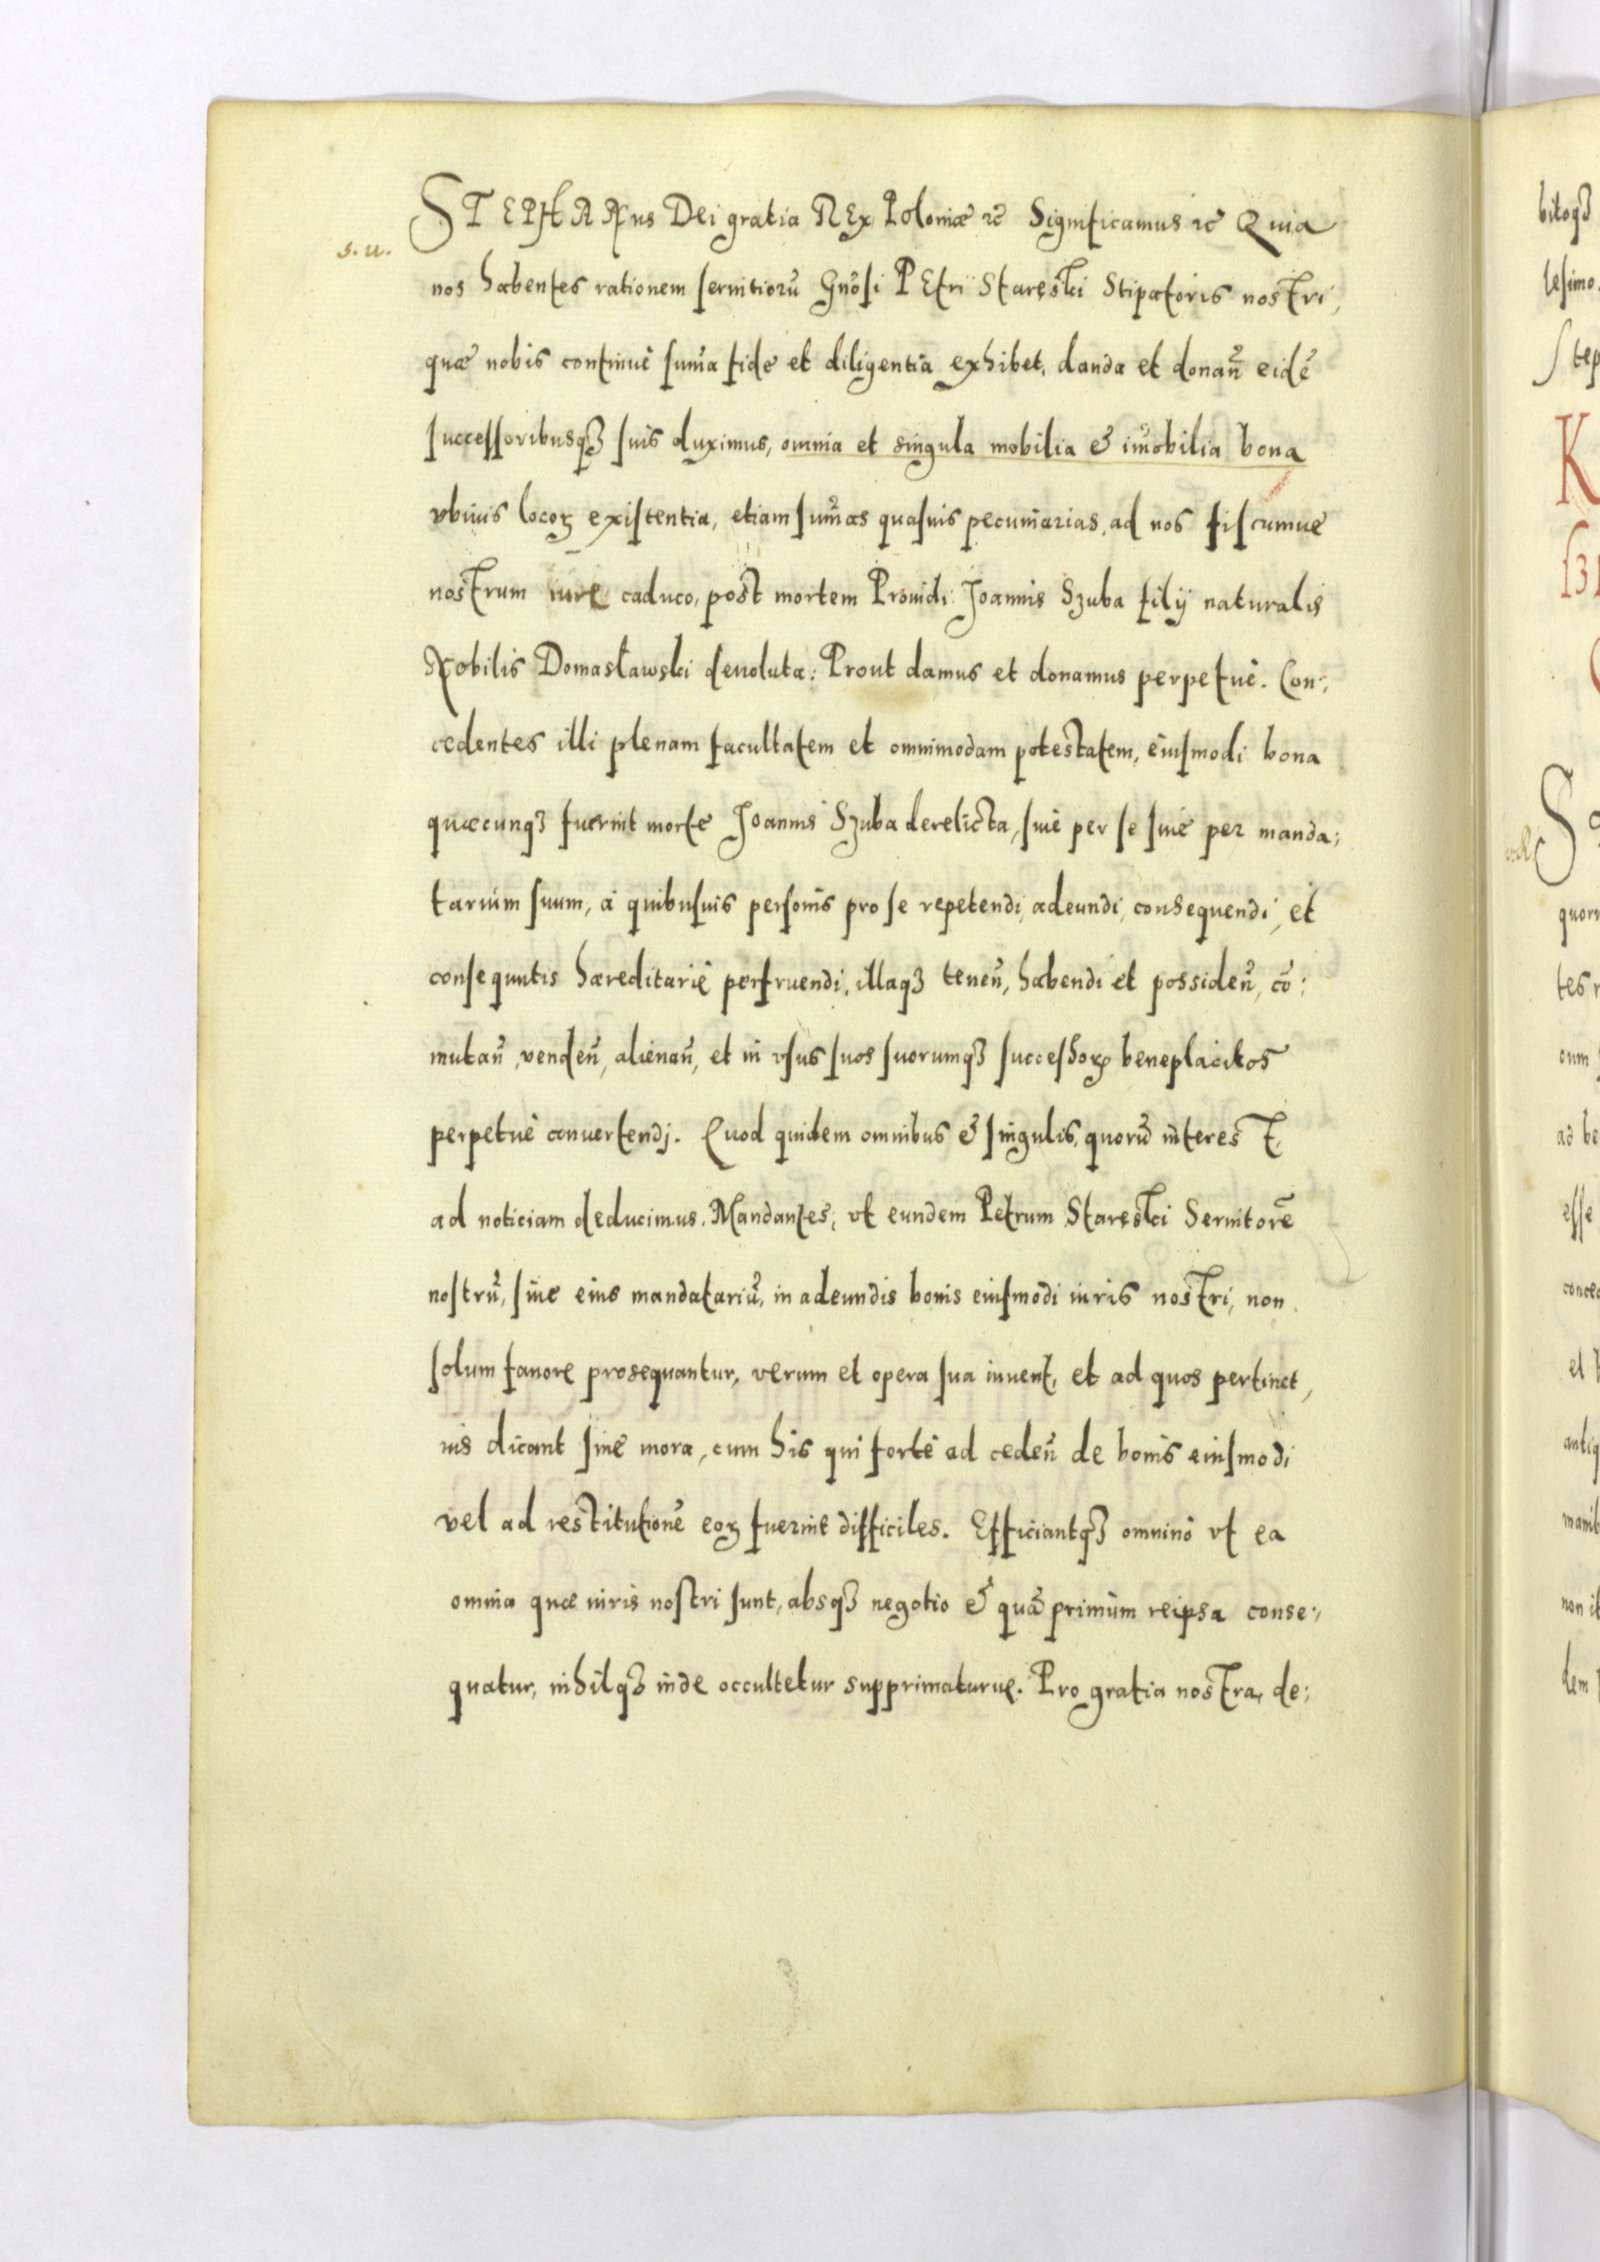 STEPHANus Dei gratia REx Poloniæ ꝛc̃ Significamus ꝛc̃ Quia
s. u.
nos habentes rationem seruitiorũ Gñosi PEtri Staręski Stipatoris nostri,
quæ nobis continuè sum̃a fide et diligentia exhibet, danda et donañ eidẽ
successoribusqꝫ suis duximus, omnia et singula mobilia & im̃obilia bona
vbiuis locoꝝ existentia, etiam sum̃as quasuis pecuniarias, ad nos fiscumue
nostrum iure caduco, post mortem Prouidi Joannis Szuba filij naturalis
Nobilis Domasławski deuoluta: Prout damus et donamus perpetuè. Con:,
cedentes illi plenam facultatem et omnimodam potestatem, eiusmodi bona
quæcunqꝫ fuerint morte Joannis Szuba derelicta, siue per se siue per manda:,
tarium suum, à quibusuis personis pro se repetendi, adeundi, consequendi, et
consequutis hæreditariè perfruendi, illaqꝫ teneñ, habendi et possideñ, cõ:
mutañ, vendeñ, alienañ, et in vsus suos suorumqꝫ successoꝝ beneplacitos
perpetuè conuertendj. Quod quidem omnibus & singulis, quorũ interest,
ad noticiam deducimus. Mandantes, vt eundem Petrum Staręski Seruitorẽ
nostrũ, siue eius mandatariũ, in adeundis bonis eiusmodi iuris nostri, non
solum fauore prosequantur, verum et opera sua iuuent, et ad quos pertinet,
ius dicant sine mora, cum his qui fortè ad cedeñ de bonis eiusmodi
vel ad restitutionẽ eoꝝ fuerint difficiles. Efficiantqꝫ omninò vt ea
omnia quæ iuris nostri sunt, absqꝫ negotio & quã primùm reipsa conse:,
quatur, nihilqꝫ inde occultetur supprimaturue. Pro gratia nostra, de:,